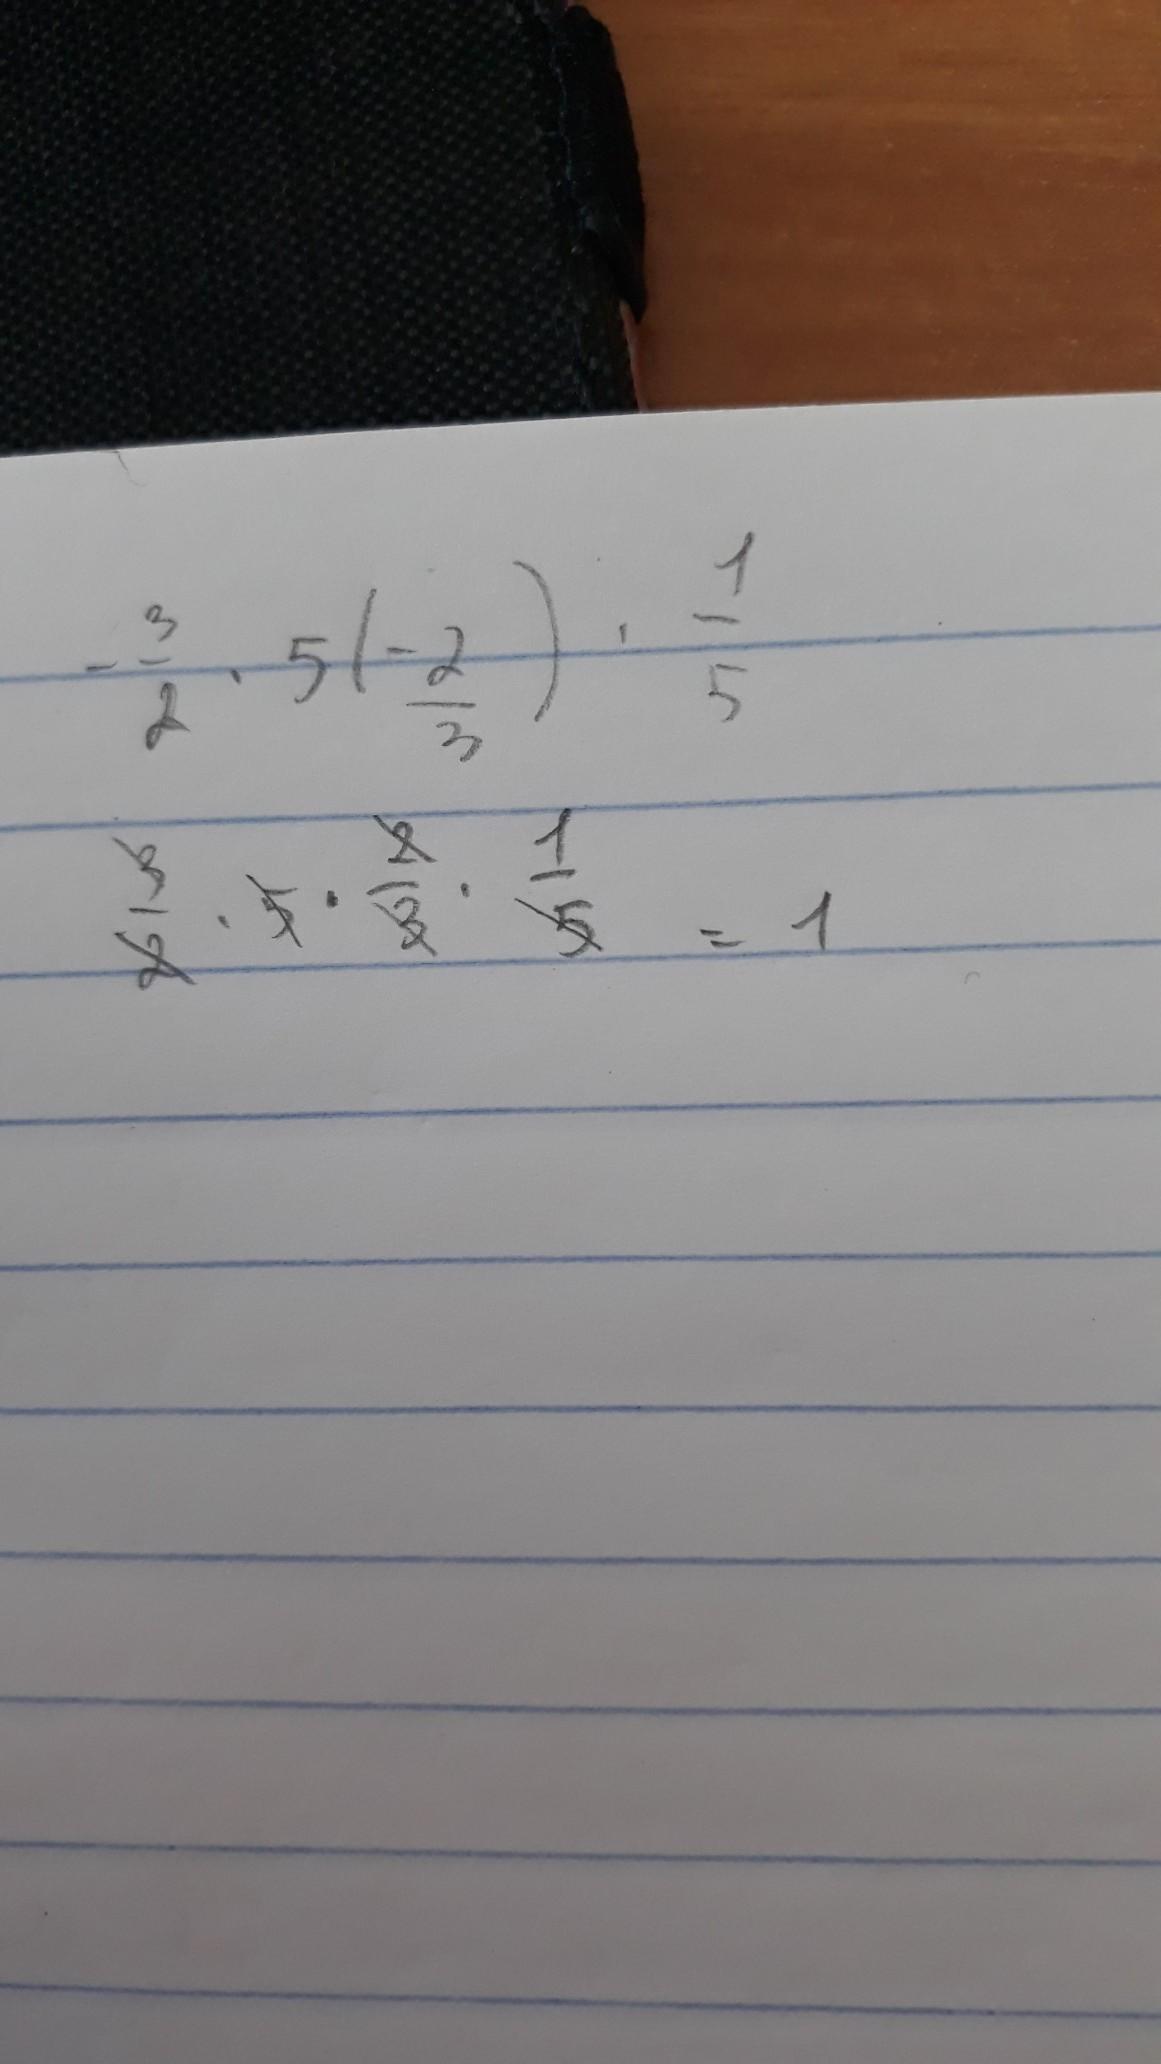 -3/2 · 5(-2/3) · 1/5
3/2 · 5 · 2/3 · 1/5 = 1